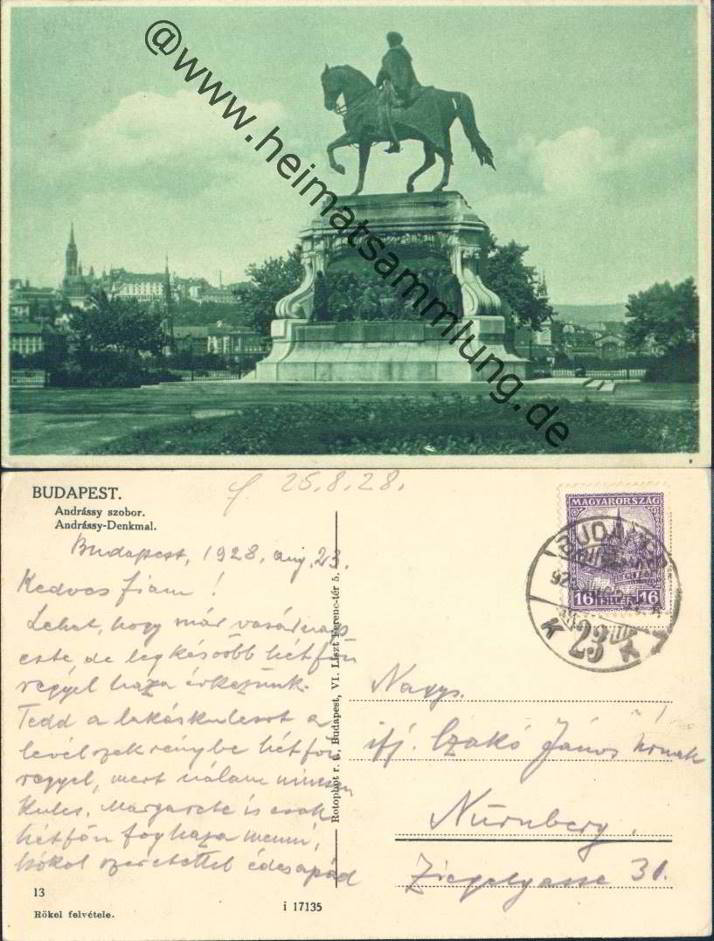 @www.heimatsammlung.de
BUDAPEST.
Andrássy szobor.
Andrássy-Denkmal.
25.8.28.
MAGYARORSZÁG
16 FILLÉR 16
BUDAPEST
23
Budapest, 1928. aug. 23.
Kedves fiam!
Lehet, hogy már vasárnap
este, de legkésőbb hétfőn
reggel haza érkezünk.
Tedd a lakáskulcsot a
levélszekrénybe hétfőn
reggel, mert nálam nincsen
kulcs. Margarete is csak
hétfőn fog haza menni,
csókol szeretettel édesapád
Rotophot r. t., Budapest, VI. Liszt Ferenc-tér 5.
Nags.
ifj. Czakó János úrnak
Nürnberg.
Ziegelgasse 31.
13
Rökel felvétele.
i 17135